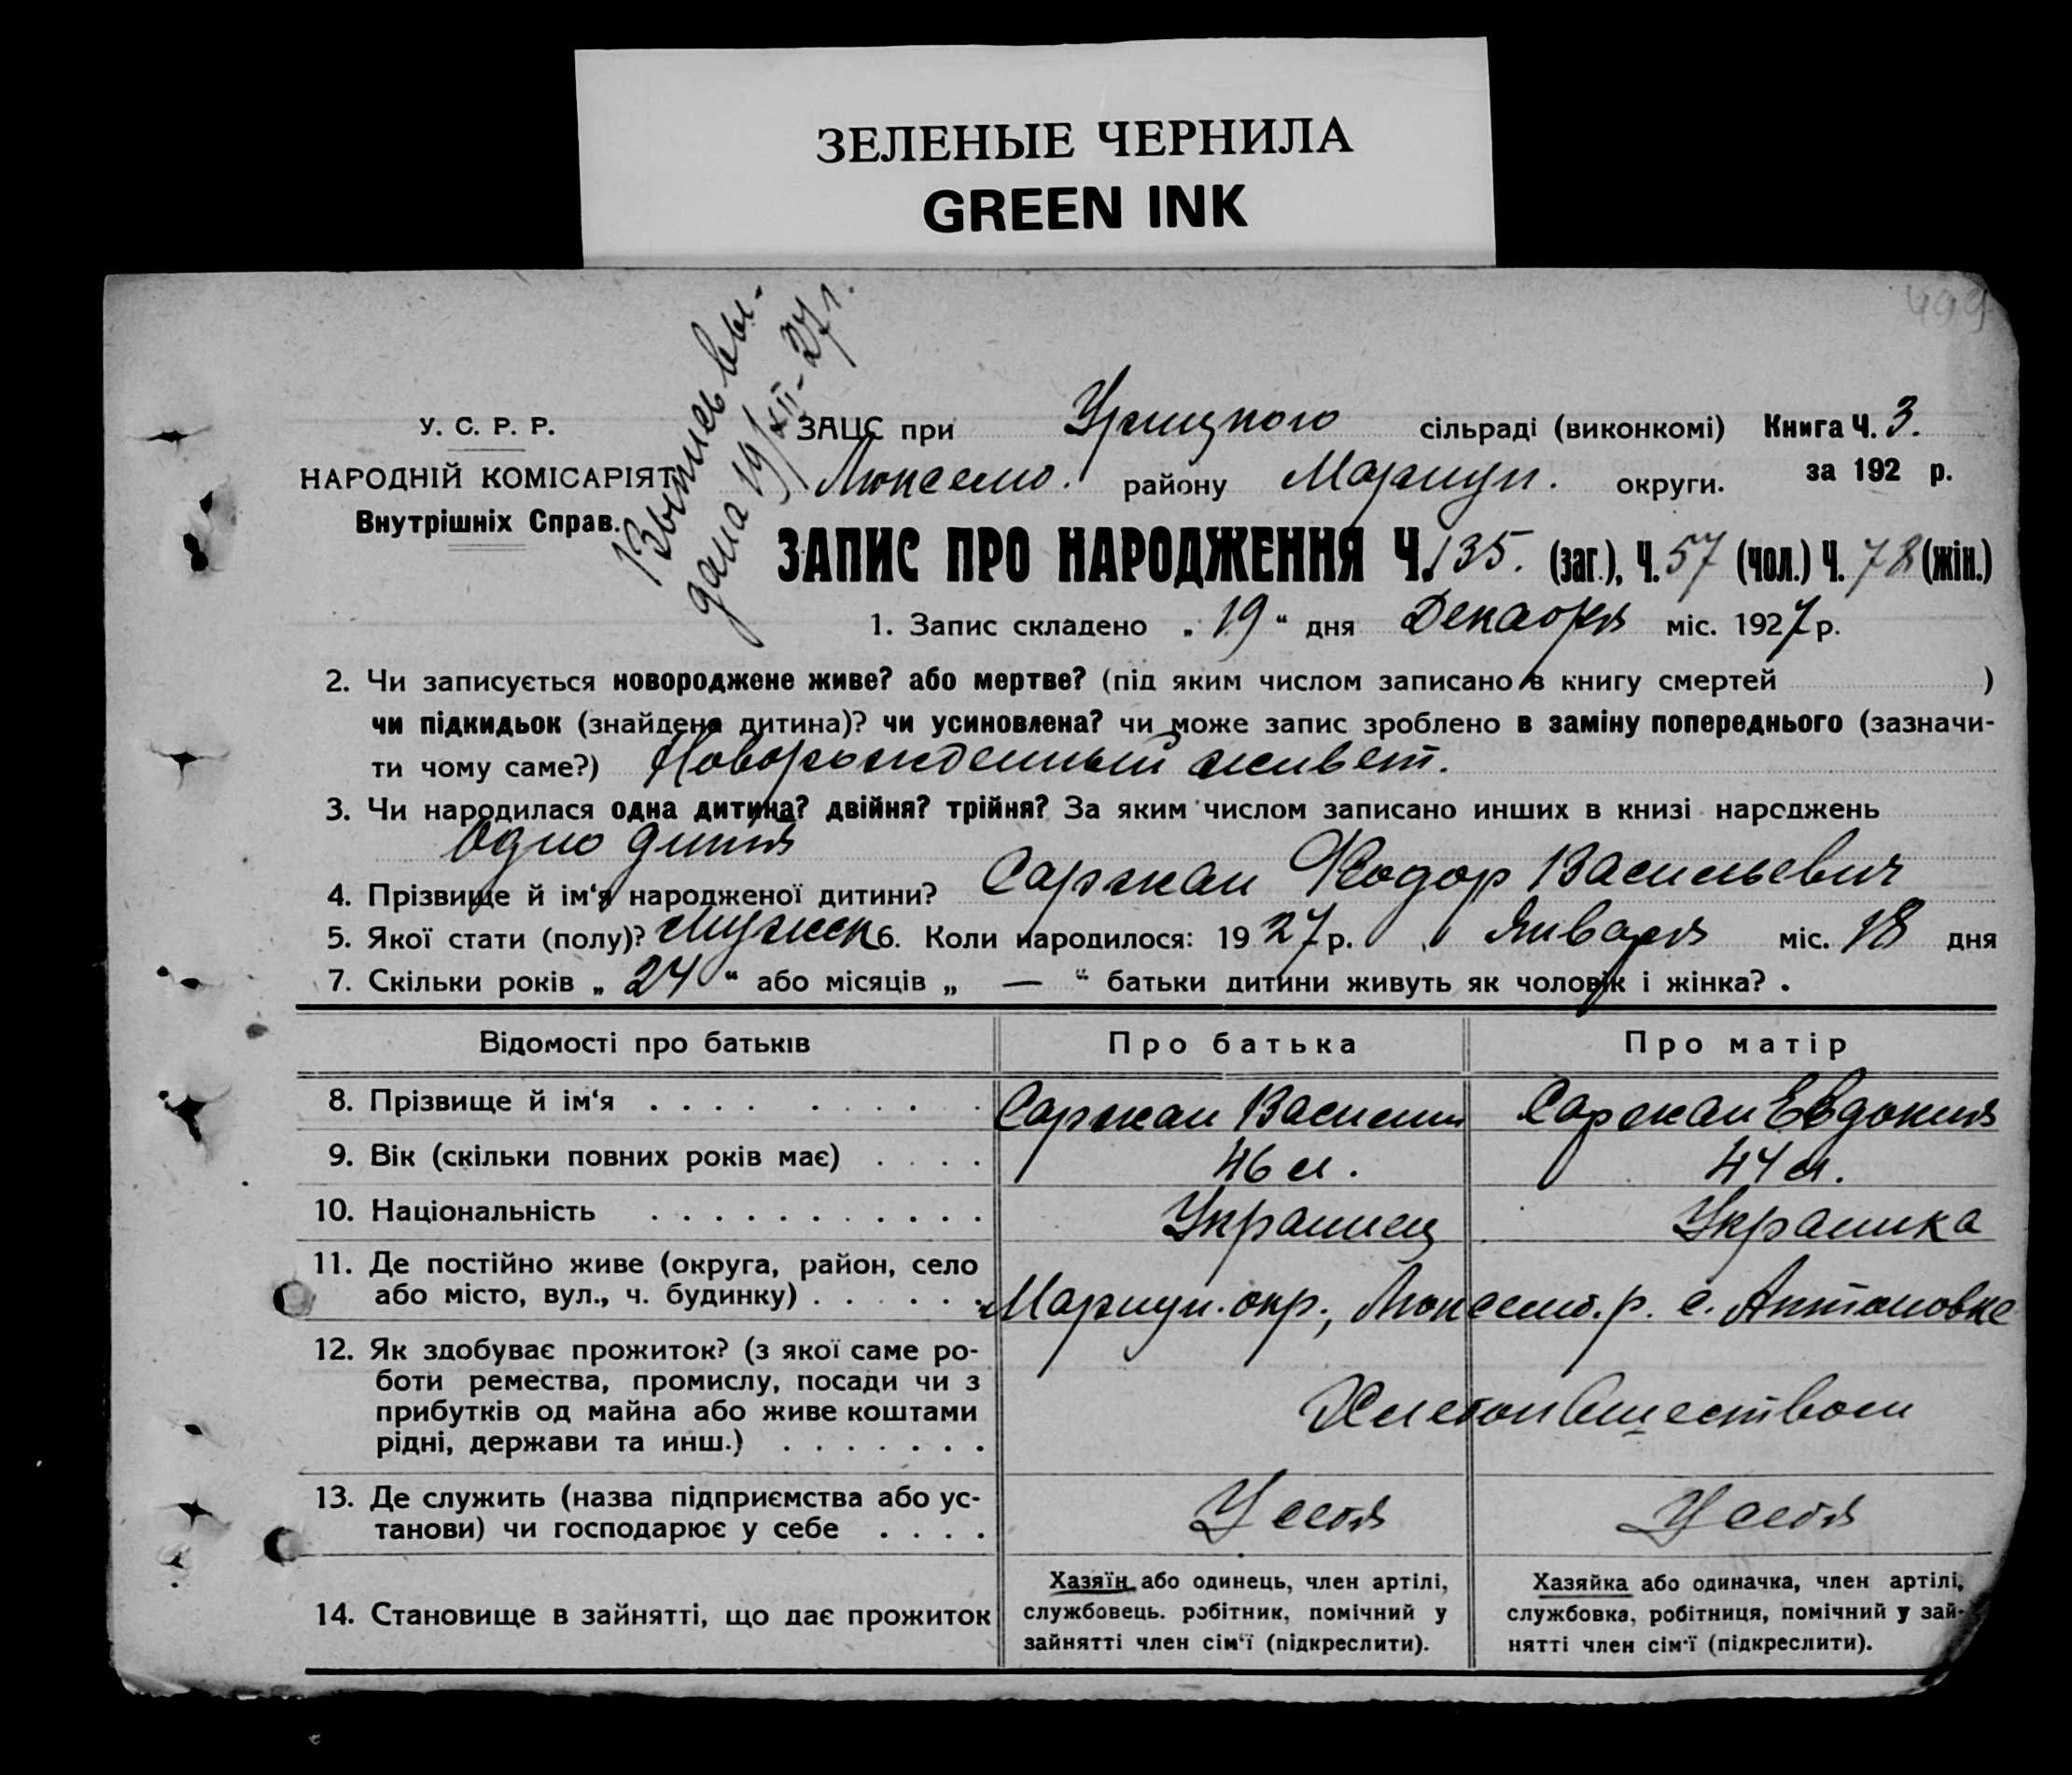 ЗЕЛЕНЫЕ ЧЕРНИЛА
GREEN INK
499
Выпись вы-
дана 19/XII-27 г.
У. С. Р. Р.
НАРОДНІЙ КОМІСАРІЯТ
Внутрішніх Справ.
ЗАЦС при Урицкого сільраді (виконкомі) Книга Ч. 3.
Люксемб. району Мариуп. округи. за 192 р.
ЗАПИС ПРО НАРОДЖЕННЯ Ч. 135. (заг.), Ч. 57 (чол.) Ч. 78 (жін.)
1. Запис складено „ 19 “ дня Декабря міс. 1927 р.
2. Чи записується новороджене живе? або мертве? (під яким числом записано в книгу смертей )
чи підкидьок (знайдена дитина)? чи усиновлена? чи може запис зроблено в заміну попереднього (зазначи-
ти чому саме?) Новорожденный живет.
3. Чи народилася одна дитина? двійня? трійня? За яким числом записано инших в книзі народжень
Одно дитя
4. Прізвище й ім‘я народженої дитини? Саржан Фодор Васильевич
5. Якої стати (полу)? мужск 6. Коли народилося: 1927 р. Января міс. 18 дня
7. Скільки років „ 24 “ або місяців „ — “ батьки дитини живуть як чоловік і жінка?
Відомості про батьків Про батька Про матір
8. Прізвище й ім‘я Саржан Василий Саржан Евдокия
9. Вік (скільки повних років має) 46 л. 44 л.
10. Національність Украинец Украинка
11. Де постійно живе (округа, район, село
або місто, вул., ч. будинку) Мариуп. окр., Люксемб. р. с. Антоновке
12. Як здобуває прожиток? (з якої саме ро-
боти ремества, промислу, посади чи з
прибутків од майна або живе коштами
рідні, держави та инш.) Хлебопашеством
13. Де служить (назва підприємства або ус-
танови) чи господарює у себе У себя У себя
14. Становище в зайнятті, що дає прожиток
Хазяїн або одинець, член артілі,
службовець. робітник, помічний у
зайнятті член сім‘ї (підкреслити).
Хазяйка або одиначка, член артілі,
службовка, робітниця, помічний у зай-
нятті член сім‘ї (підкреслити).